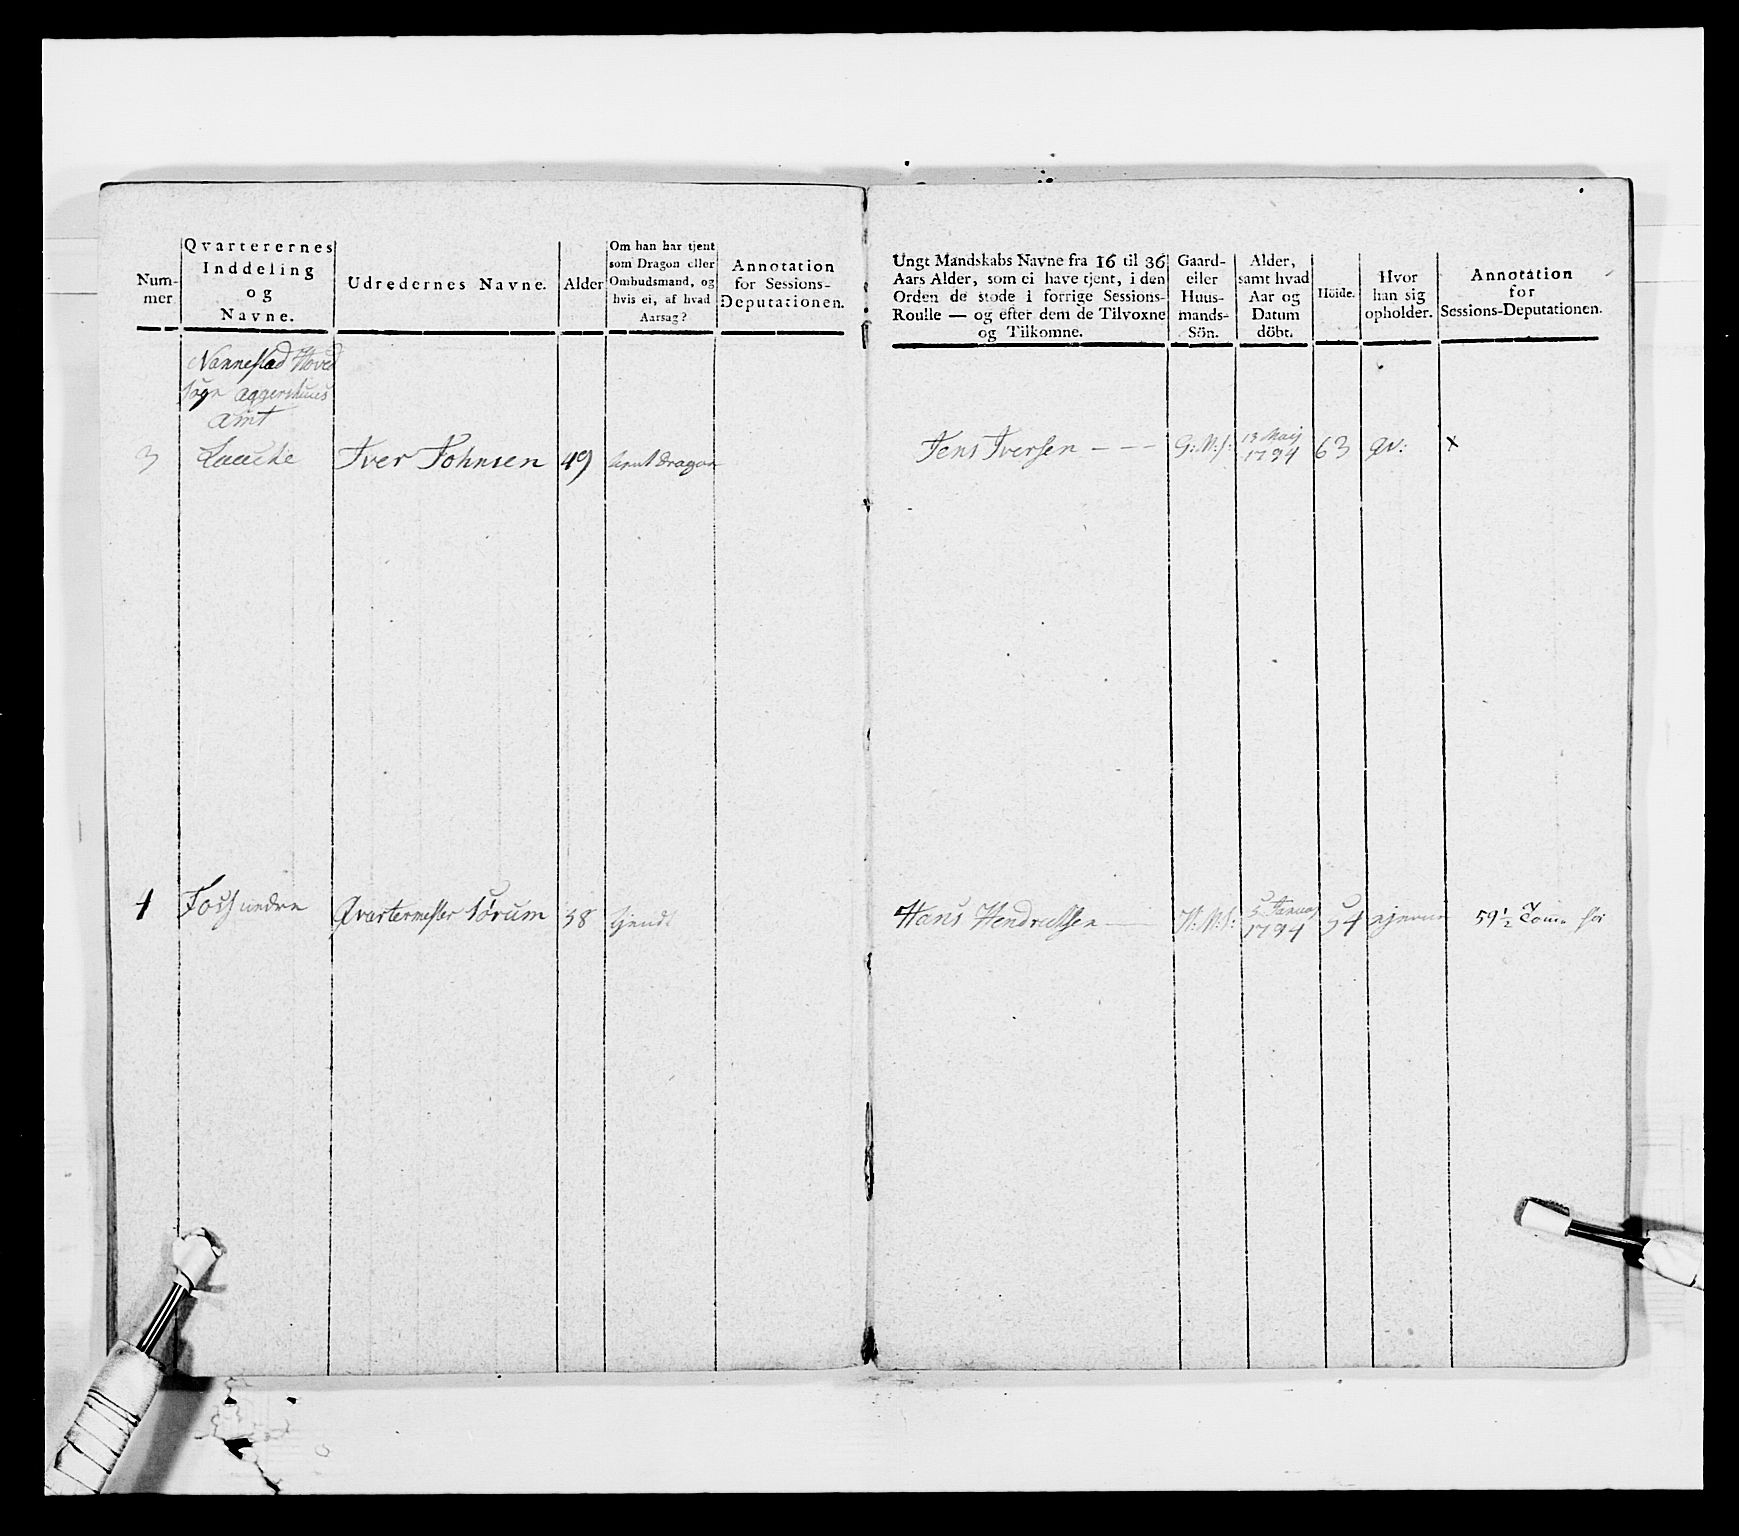 Num-
mer
Qvarterernes
Inddeling
og
Navne.
Udredernes Navne.
Alder
Om han har tjent
som Dragon eller
Ombudsmand, og
hvis ei, af hvad
Aarsag?
Annotation
for Sessions-
Deputationen.
Nannestad Hoved
Sogn Aggershuus
Amt
3
Iver Johnsen
49
dragon
4
Qvartermester Sørum
38
tjendt
Ungt Mandskabs Navne fra 16 til 36
Aars Alder, som ei have tjent, i den
Orden de stode i forrige Sessions-
Roulle — og efter dem de Tilvoxne
og Tilkomne.
Gaard-
eller
Huus-
mands-
Sön.
Alder,
samt hvad
Aar og
Datum
döbt.
Höide.
Hvor
han sig
opholder.
Annotation
for
Sessions-Deputationen.
Jens Iversen - - -
G: M: S:
13 Maij
1794
63
qv:
x
Hans Hendrichsen
H: M: S:
5 Januar
1794
54
59 1/2